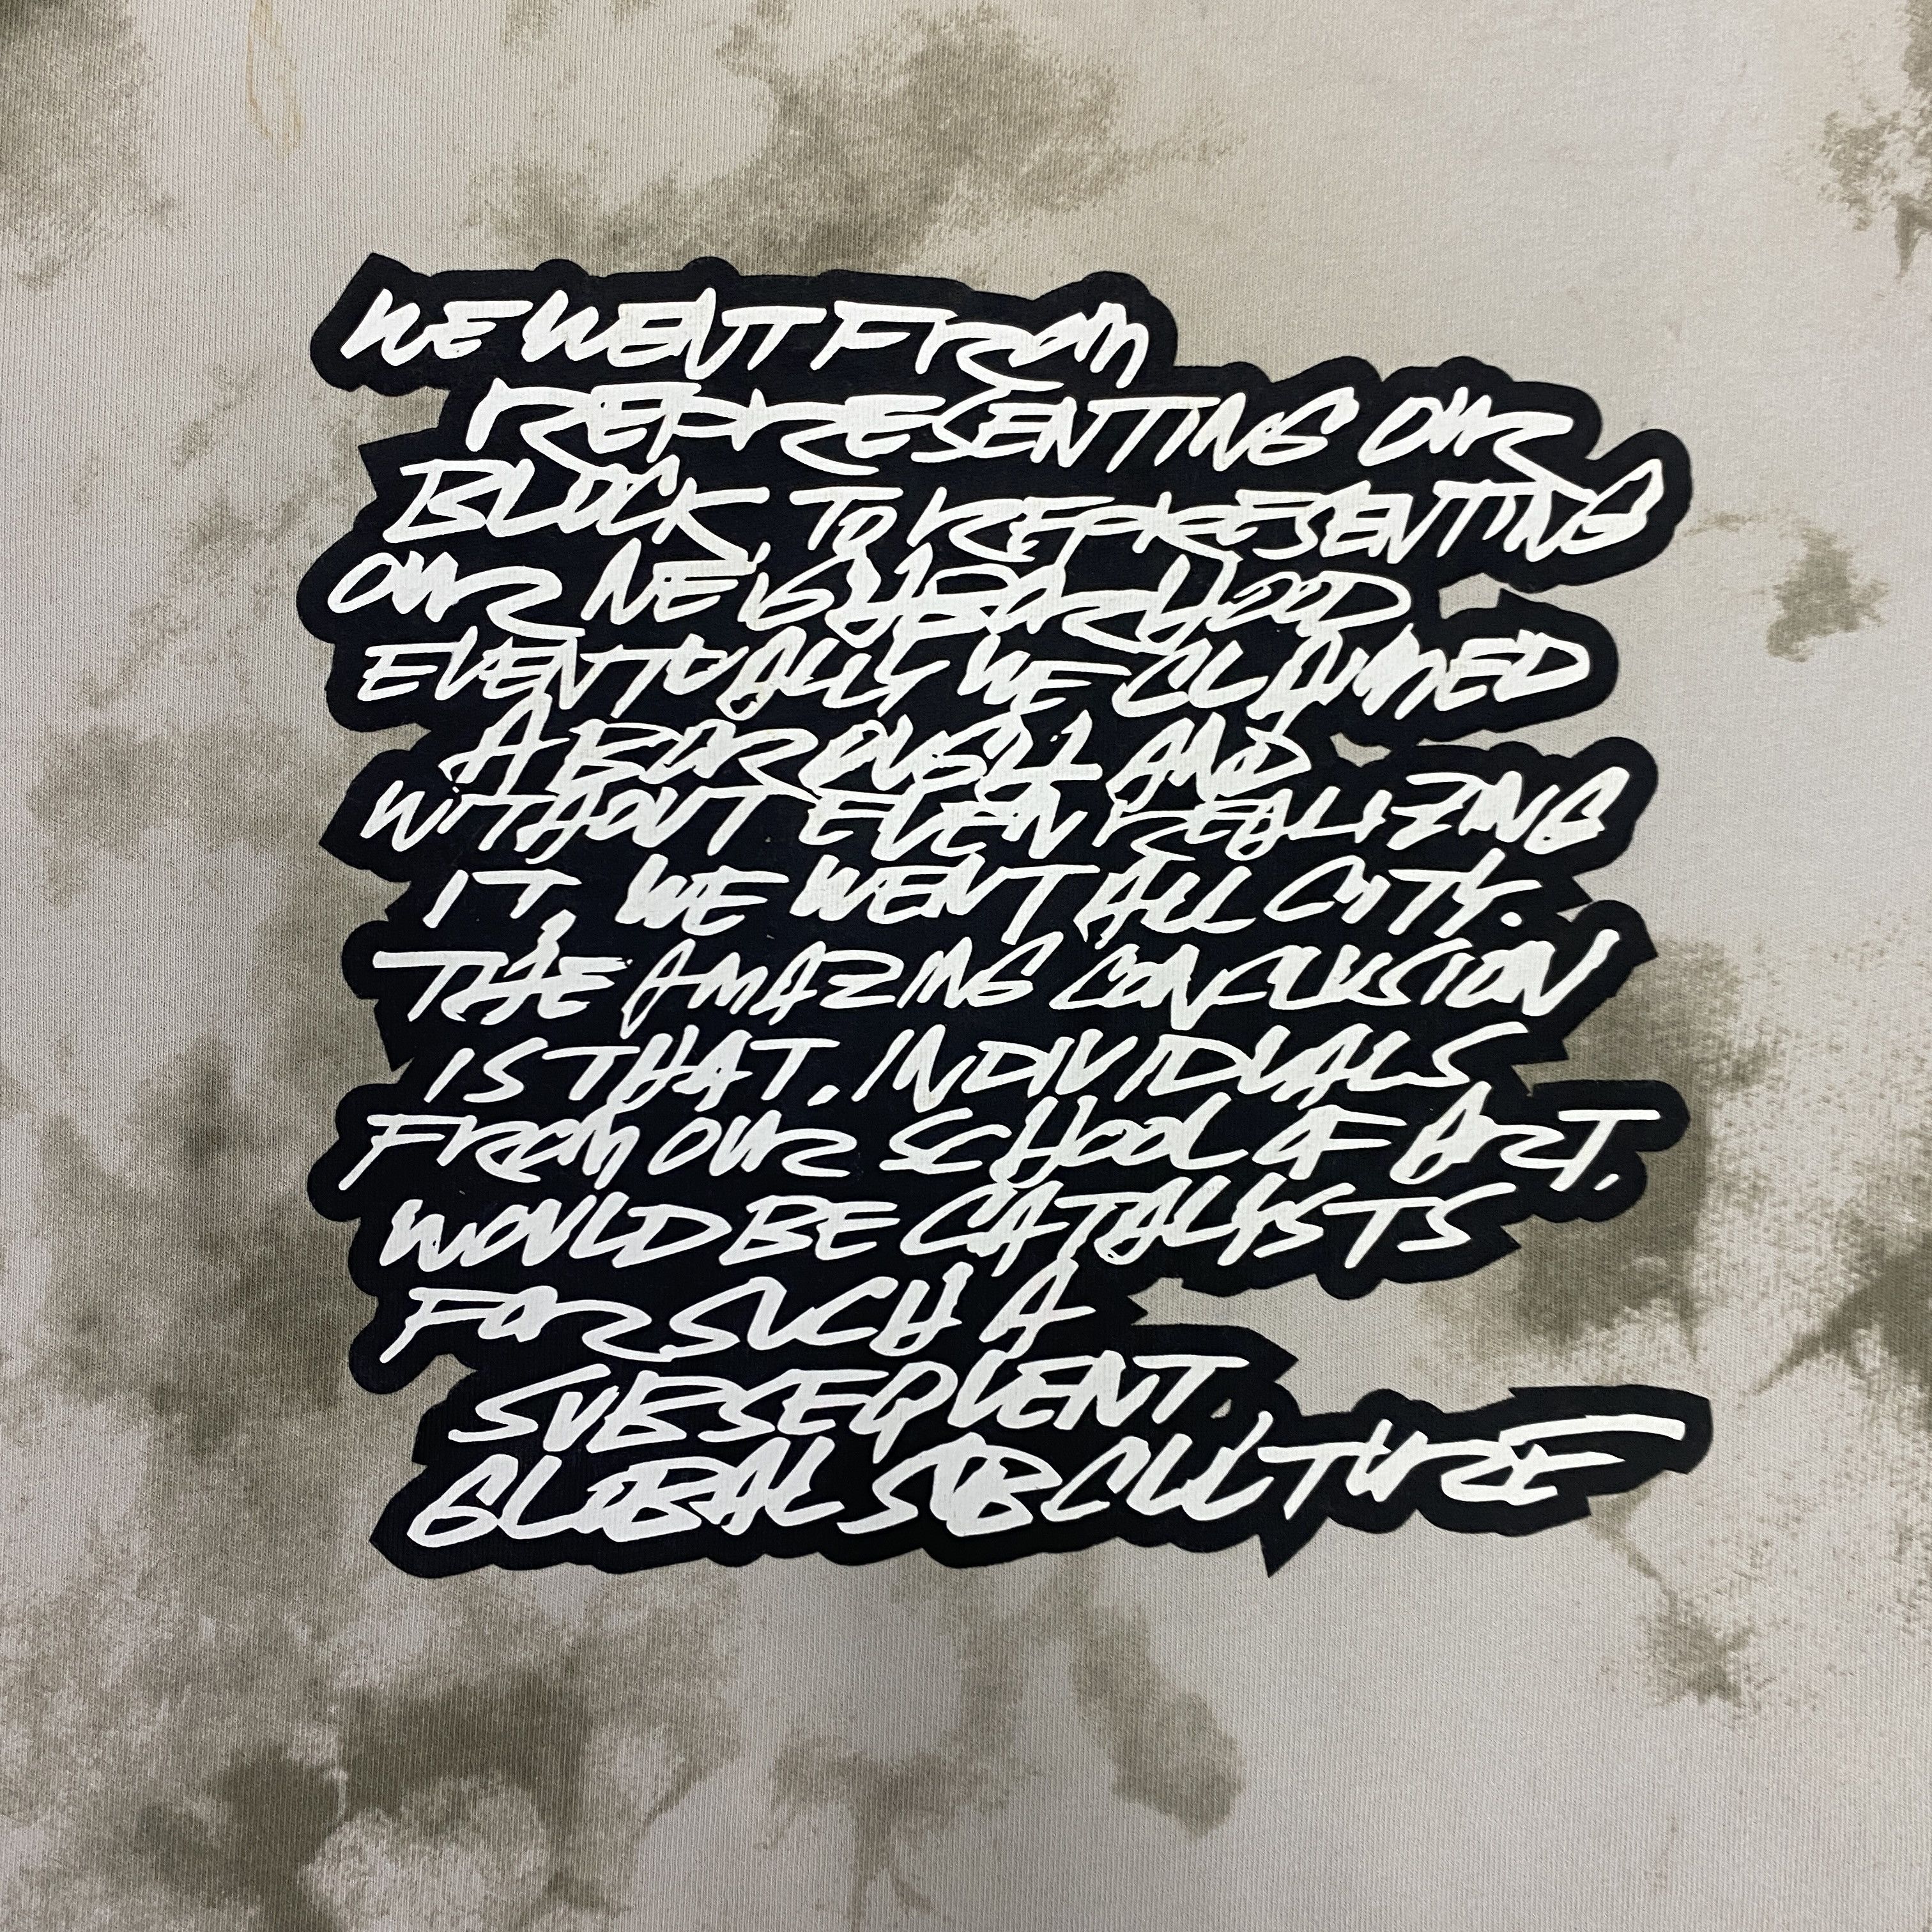 WE WENT FROM
REPRESENTING OUR
BLOCK, TO REPRESENTING
OUR NEIGHBORHOOD
EVENTUALLY WE CLAIMED
A BOROUGH AND
WITHOUT EVEN REALIZING
IT, WE WENT ALL CITY.
THE AMAZING CONCLUSION
IS THAT, INDIVIDUALS
FROM OUR SCHOOL OF ART,
WOULD BE CATALYSTS
FOR SUCH A
SUBSEQUENT
GLOBAL SUBCULTURE